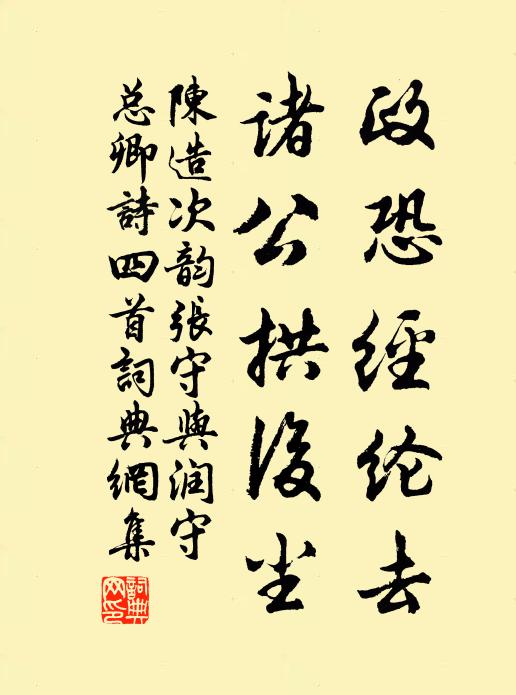 政恐經纶去
諸公拱後尘
陳造次韵張守與润守
总卿詩四首詞典網集